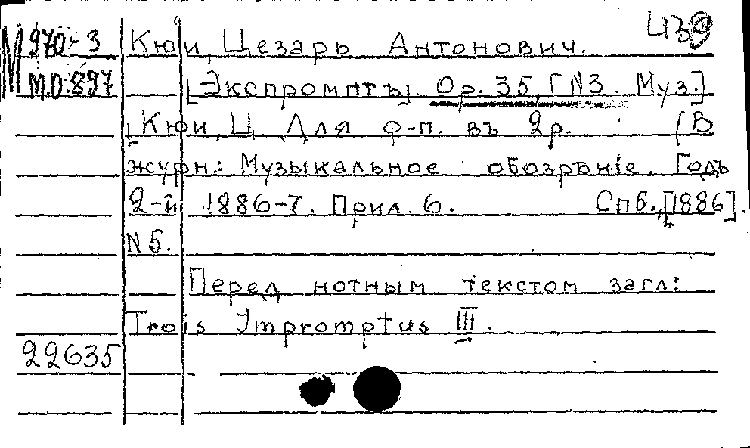 439
М 970-3 Кюи, Цезарь Антонович.
М.О. 897 [Экспромптъ] Op. 35, № 3. Муз.]
[Кюи, Ц. Для ф-п. въ 2р. (В
журн: Музыкальное обозрѣніе. Годъ
2-й 1886-7. Прил. 6. Спб., [1886].
N 5.
Перед нотным текстом загл:
Trois Impromptus III.
22635